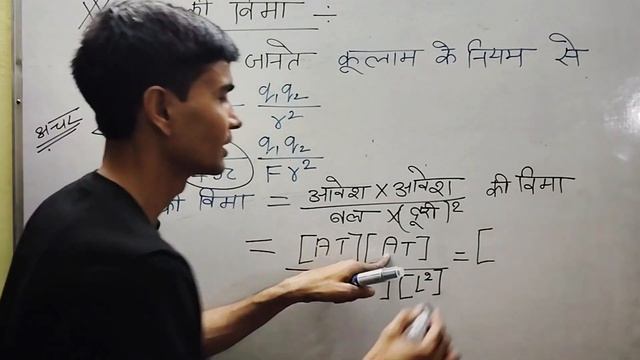 की विमा ÷
जानते कूलाम के नियम से
q₁q₂
r²
अचर
q₁q₂
Fr²
की विमा = आवेश × आवेश की विमा
बल × (दूरी)²
= [AT][AT] = [
][L²]